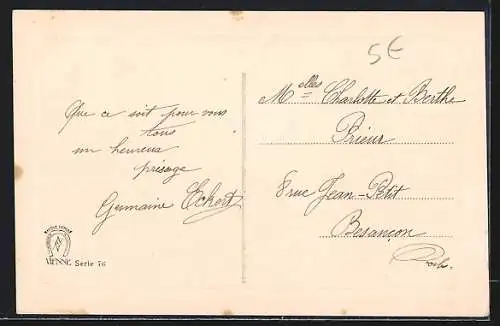 5€
Que ce soit pour vous
tous
un heureux
présage
Germaine Eckert
M elles Charlotte et Berthe
Prieur
8 rue Jean-Petit
Besançon
VIENNE Serie 76